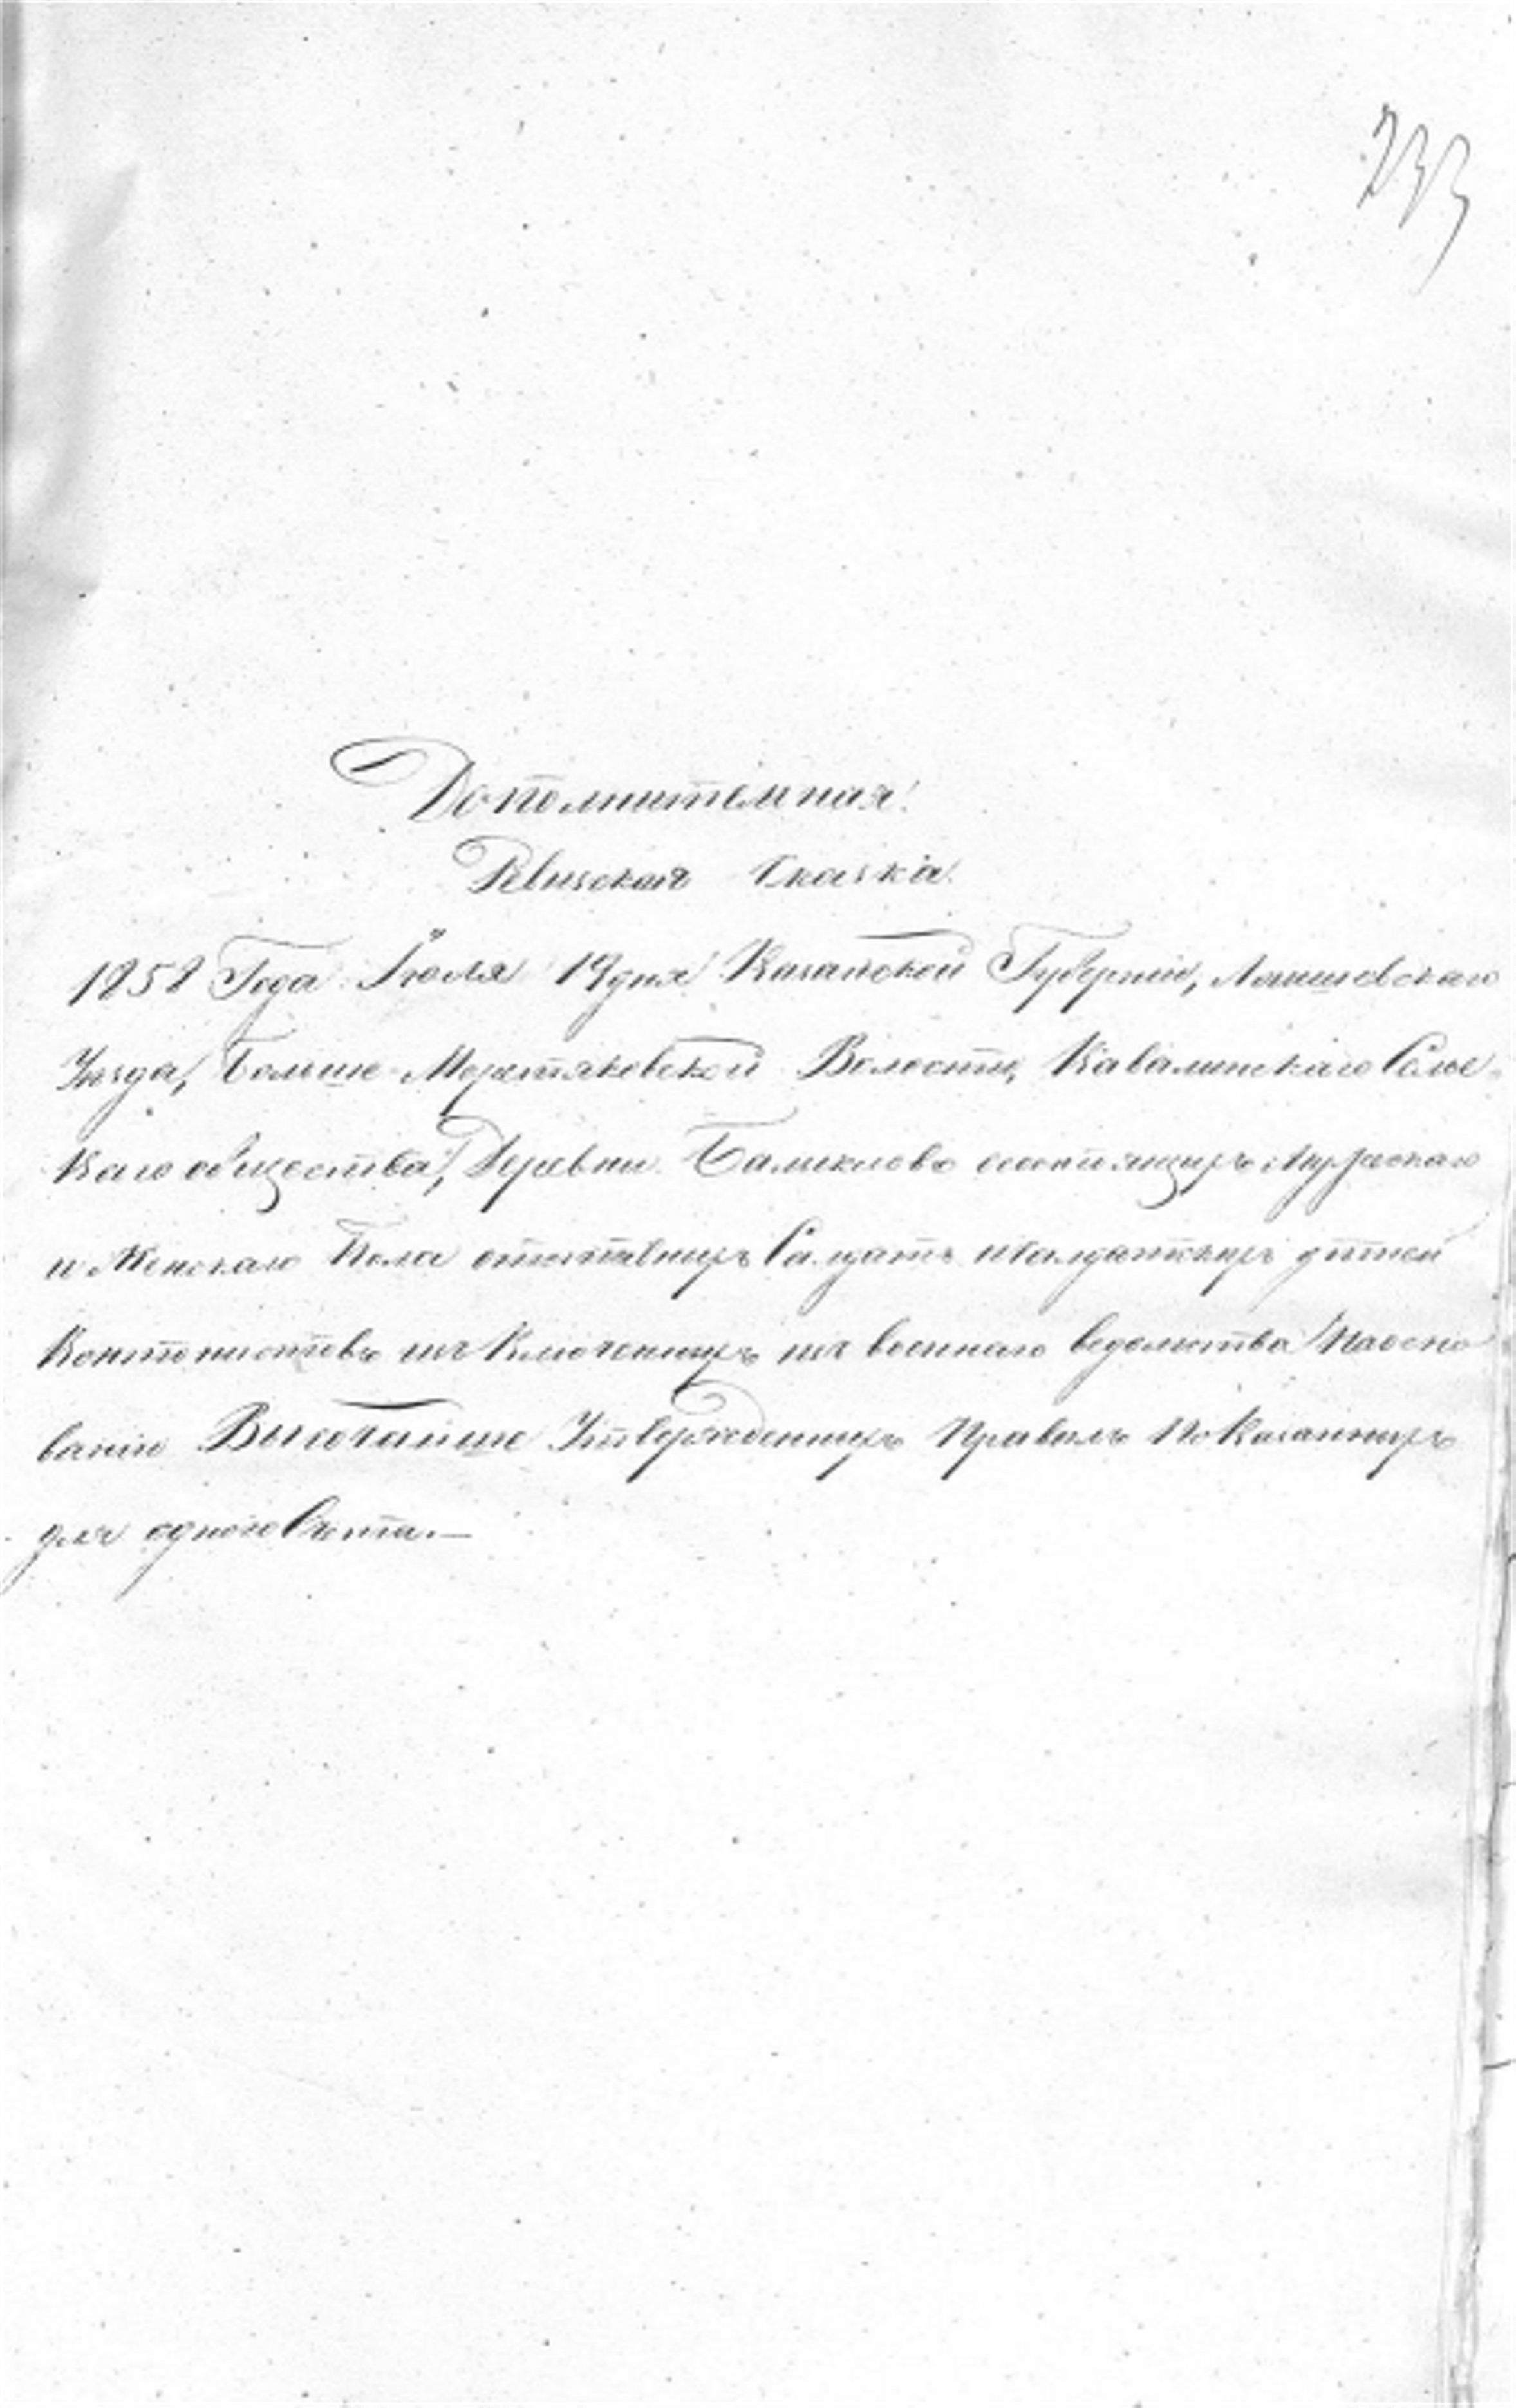 233
Дополнительная
Ревиская Сказка
1858 Года Іюля 19 дня Казанской Губерніи, Лаишевскаго
Уѣзда, Больше Меретяковской Волости, Кавалинскаго Сель-
каго общества, Деревни состоящихъ Мужескаго
и Женскаго Пола отставныхъ Салдатъ и Салдатскихъ дѣтей
Контонистовъ изключенныхъ изъ военнаго ведомства На осно
ваніи Высочайше Утвержденныхъ Правилъ Показанныхъ
для одного Счета.—